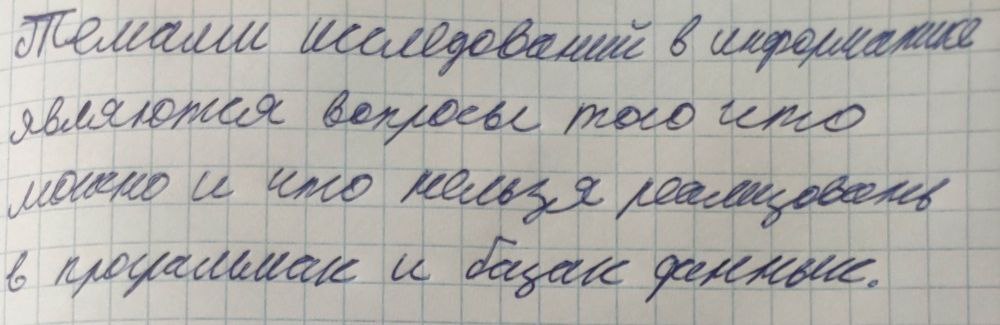 Темами исследований в информатике
являются вопросы того что
можно и что нельзя реализовать
в программах и базах данных.